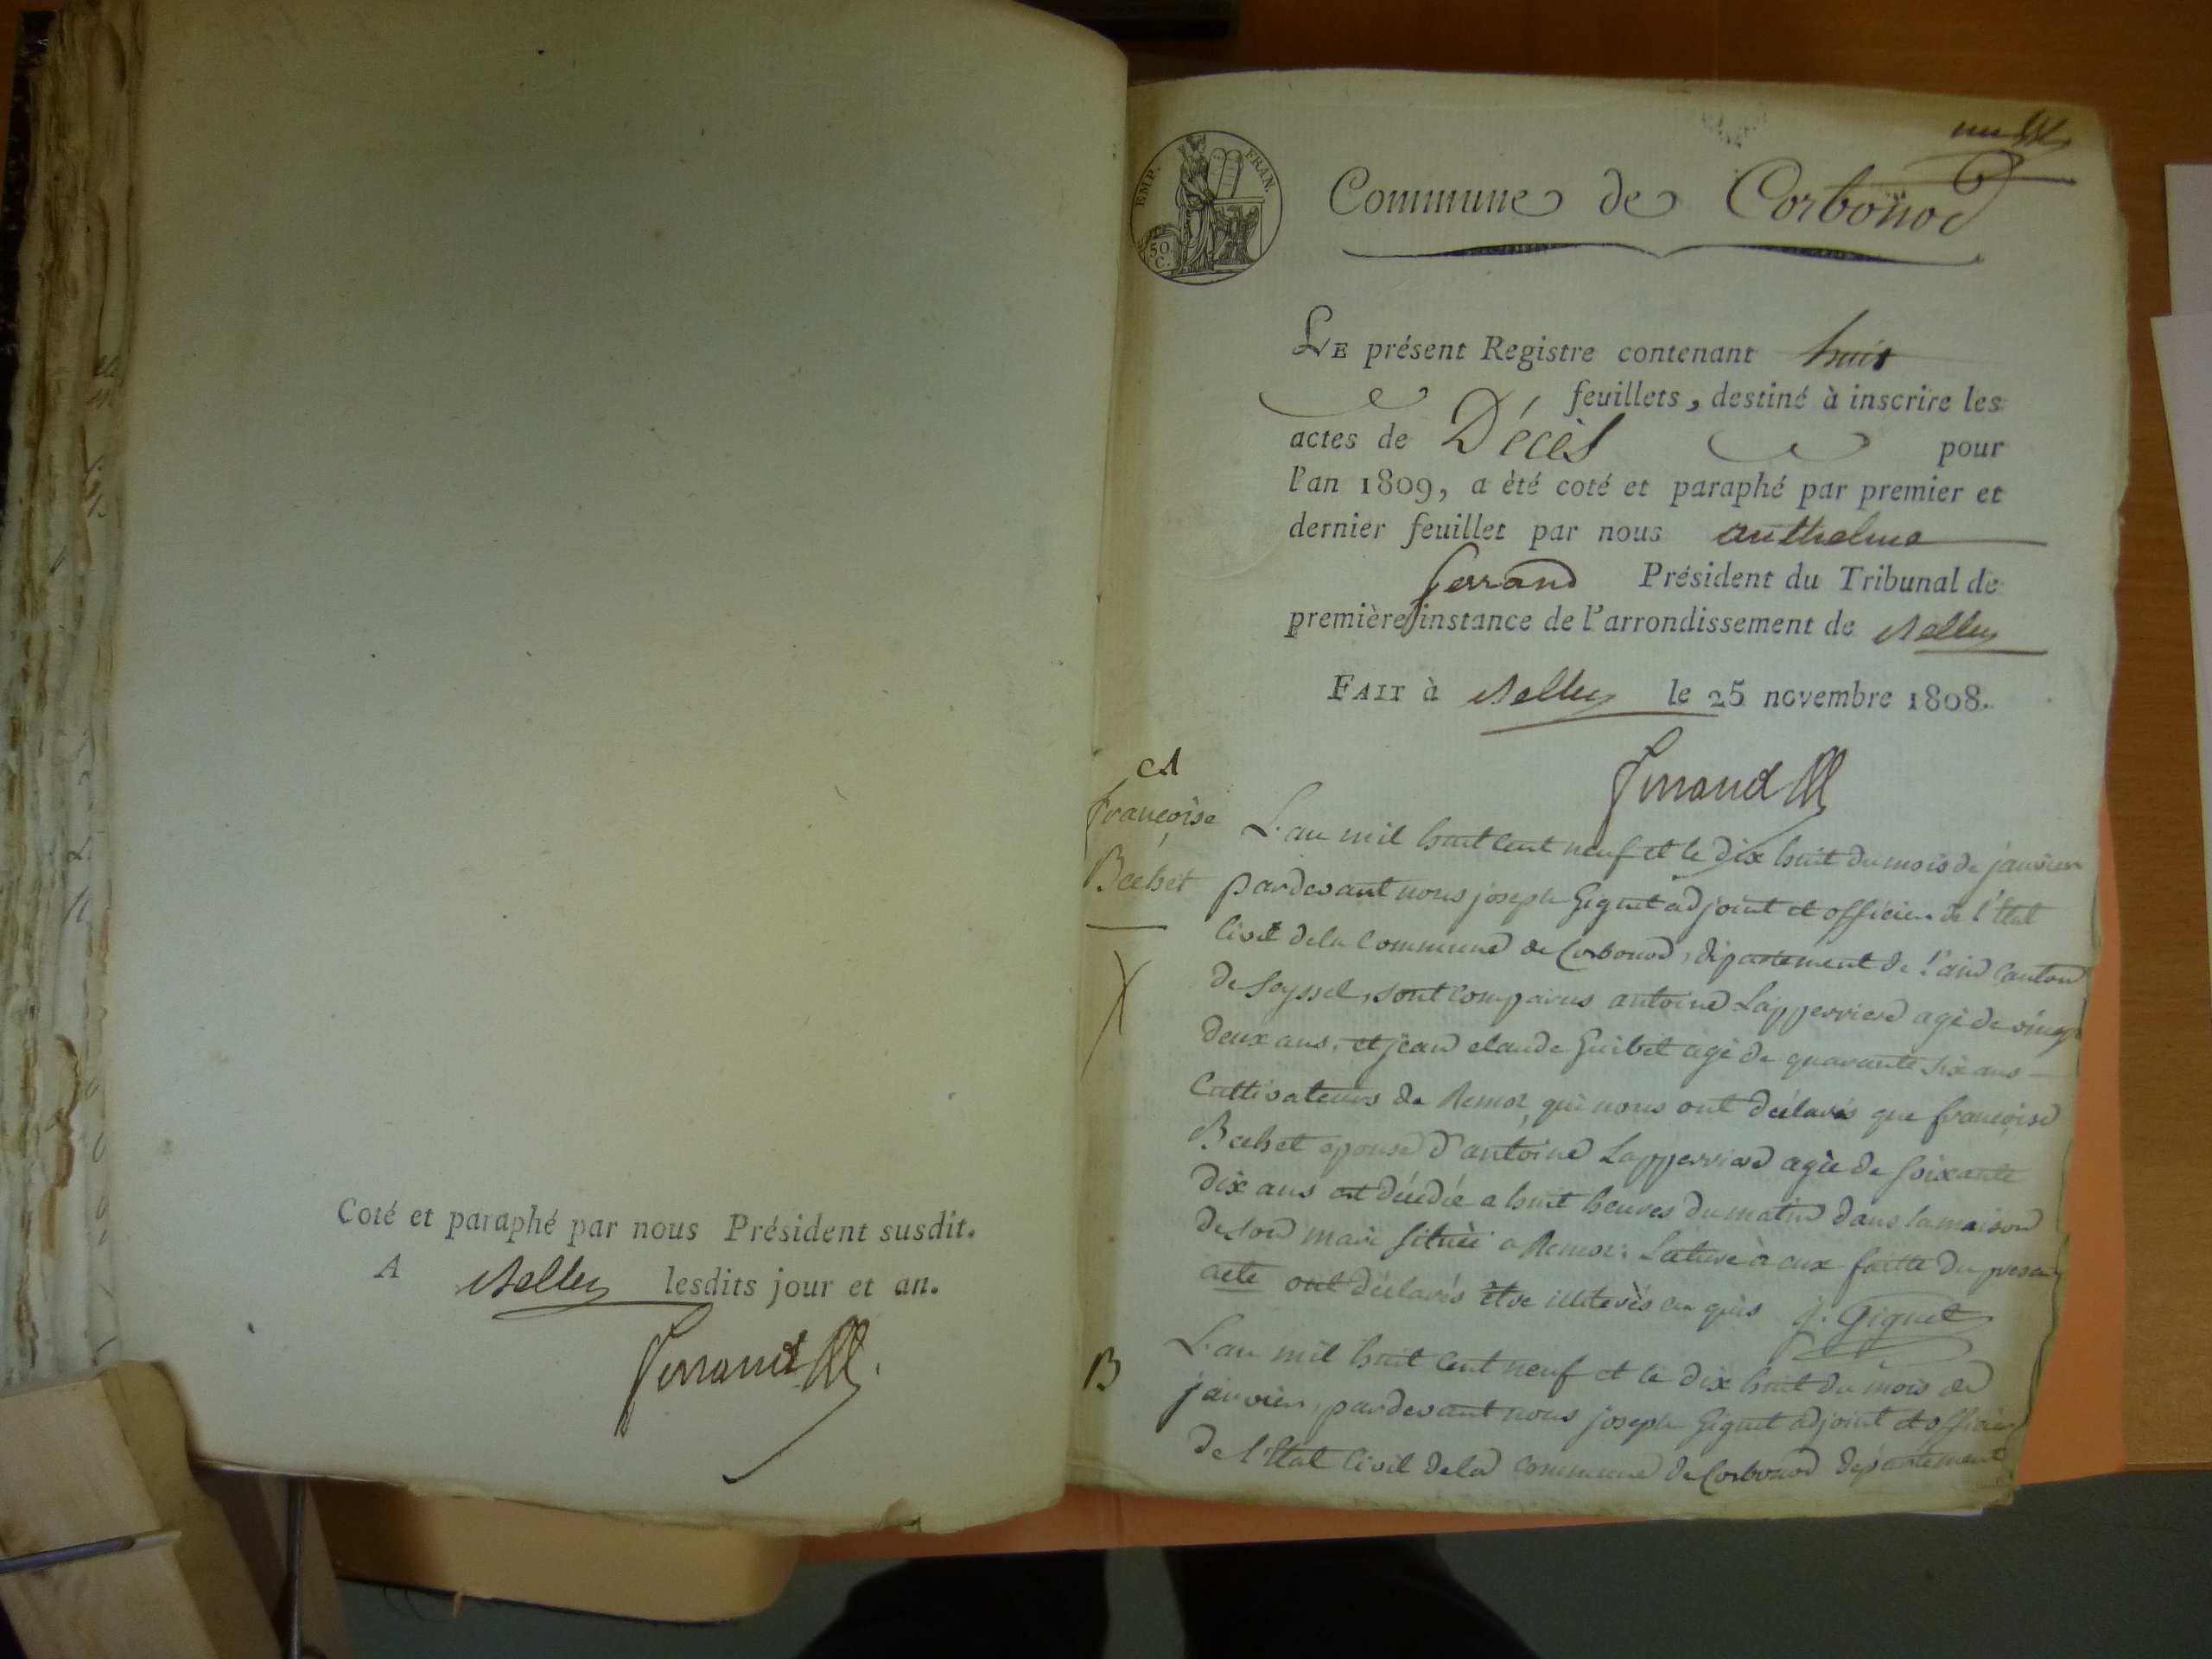 Coté et paraphé par nous Président susdit.
A Belley lesdits jour et an.
Ferrand
un
EMP. FRAN.
50
C.
Commune de Corbonod
LE présent Registre contenant huit
feuillets, destiné à inscrire les
actes de Décès pour
l'an 1809, a été coté et paraphé par premier et
dernier feuillet par nous anthelme
ferrand Président du Tribunal de
première instance de l'arrondissement de Belley
FAIT à Belley le 25 novembre 1808.
Ferrand
A
françoise
Béchet
L'an mil huit cent neuf et le dix huit du mois de janvier
pardevant nous joseph Giguet adjoint et officier de l'État
Civil dela Commune de Corbonod, département de l'ain Canton
de Seyssel, sont comparus antoine Lapperriere agé de vingt
deux ans, et jean claude Guibet agé de quarante six ans
Cultivateurs de Remoz, qui nous ont déclarés que françoise
Bechet epouse d'antoine Lapperriere agée de soixante
dix ans est décédée a huit heures du matin dans la maison
de son mari située a Remoz. Lecture à eux faitte du present
acte ont déclarés etre illiterés enquis J. Giguet
B
L'an mil huit cent neuf et le dix huit du mois de
janvier, pardevant nous joseph Giguet adjoint et officier
de l'État Civil dela commune de Corbonod département